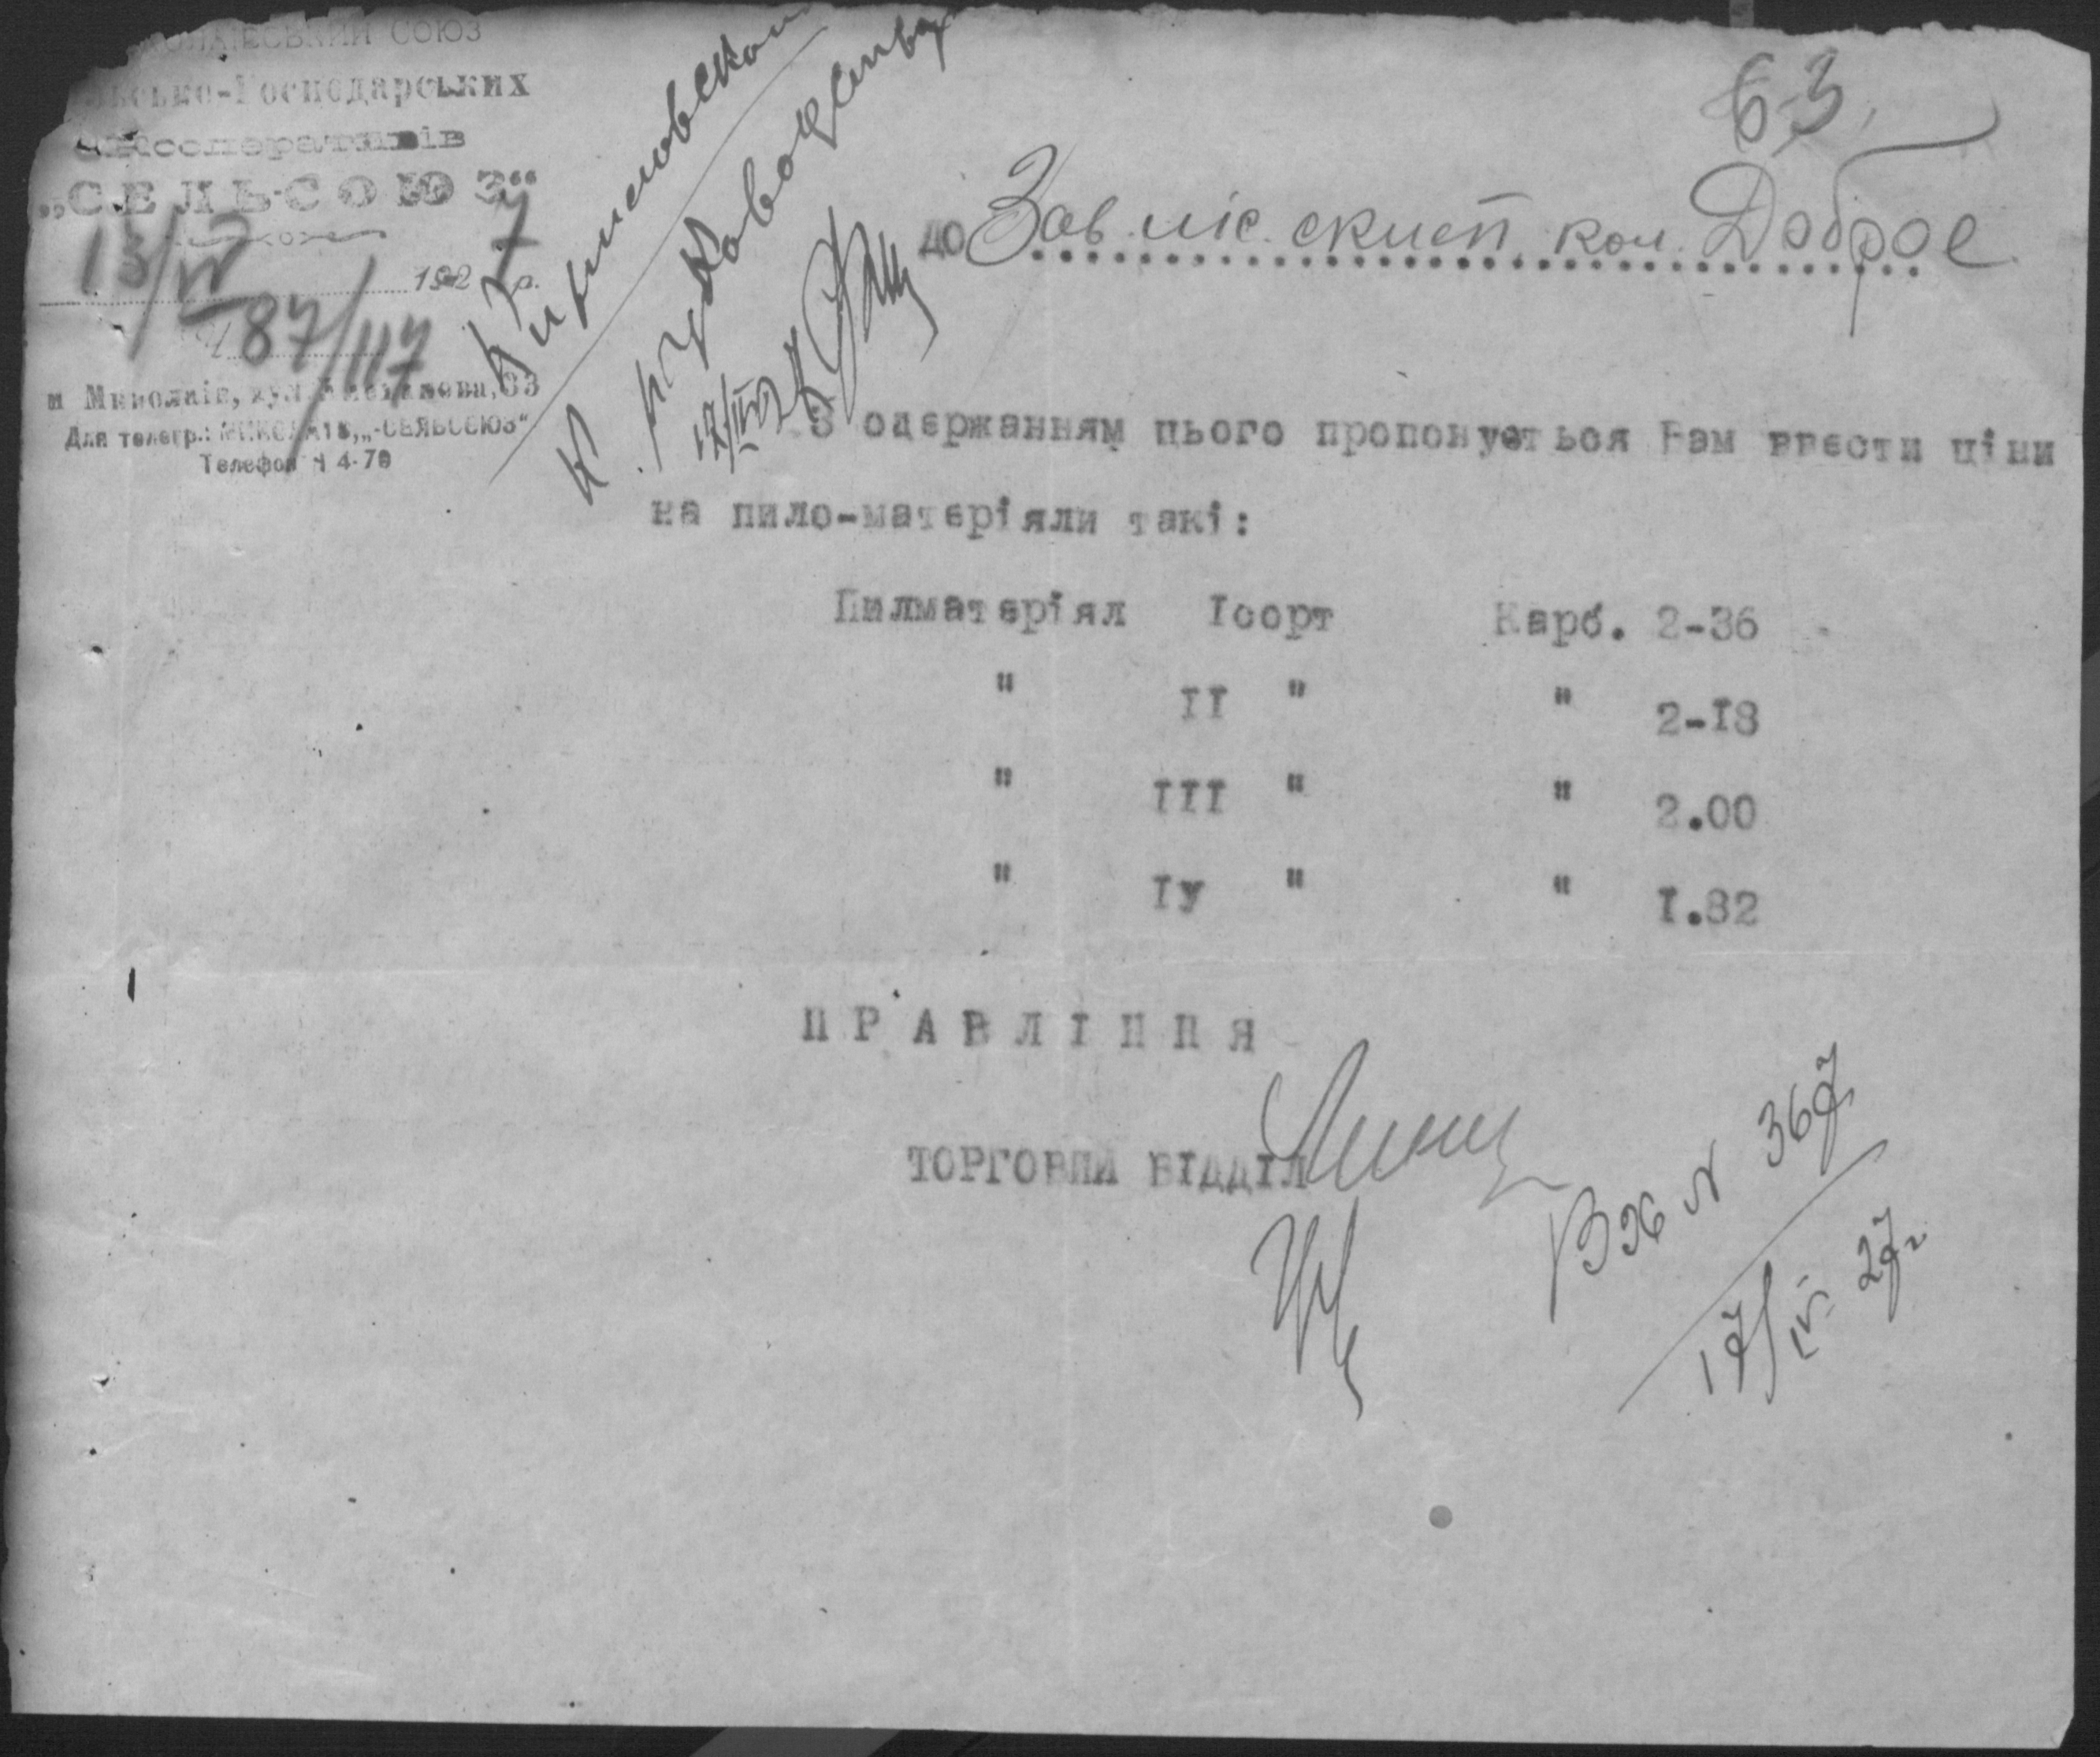 СОЮЗ
Господарських
Кооперативів
„СЕЛЬ-СОЮЗ“
13/IV 1927 р.
87/117
м Миколаїв, вул. 33
Для телегр.: МИКОЛАЇВ, „СЕЛЬСОЮЗ“
Телефон № 4-70
К руководству
17/IV
63
до Зав. ліс. склеп. кол. Доброе
З одержанням цього пропонується Вам ввести ціни
на пило-матеріяли такі:
Пилматеріял Iсорт Карб. 2-36
" II " " 2-I8
" III " " 2.00
" IУ " " I.82
ПРАВЛІННЯ
ТОРГОВИЙ ВІДДІЛ
Вх N 367
17/IV 27г